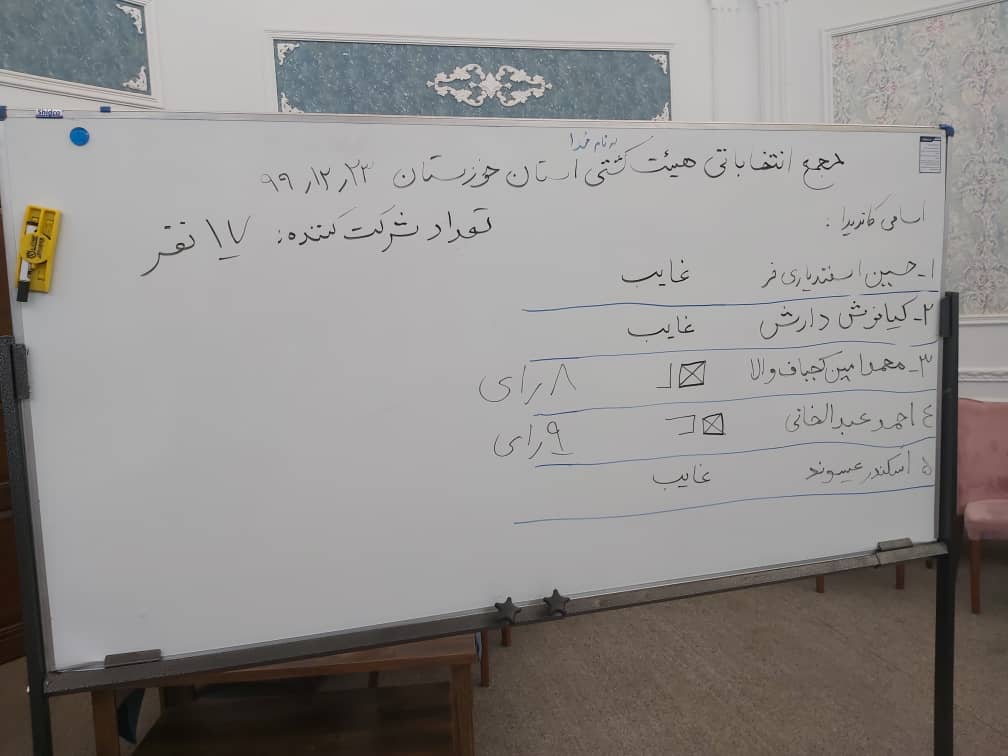 Shidco
به نام خدا
مجمع انتخاباتی هیئت کشتی استان خوزستان ۹۹٫۱۲٫۲۳
تعداد شرکت کننده: ۱۷ نفر
اسامی کاندیدا:
۱- حسین اسفندیاری فر غایب
۲- کیانوش دارش غایب
۳- محمدامین کجباف والا ۸ رای
٤ احمد عبدالخانی ۹ رای
۵ اسکندر عیسوند غایب